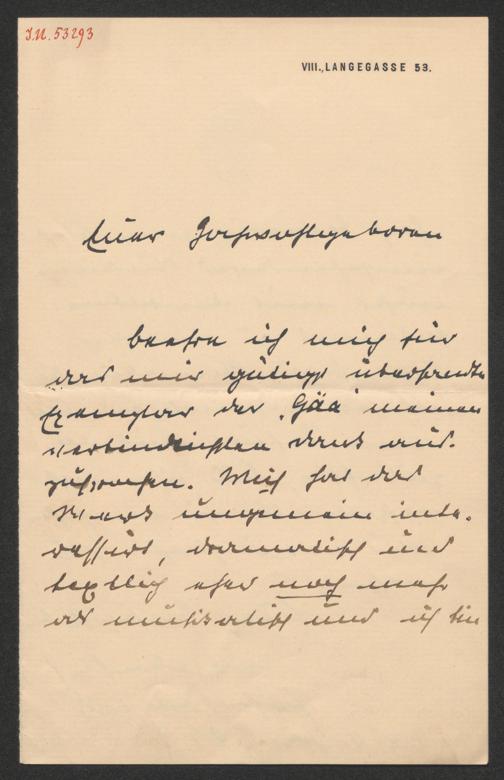 I.N. 53293
VIII., LANGEGASSE 53.
Euer Hochwohlgeboren
beehre ich mich für
das mir gütigst übersandte
Exemplar der "Gäa" meinen
verbindlichsten Dank aus-
zusprechen. Mich hat das
Werk ungemein inte-
ressirt, dramatisch und
textlich eher noch mehr
als musikalisch und ich bin